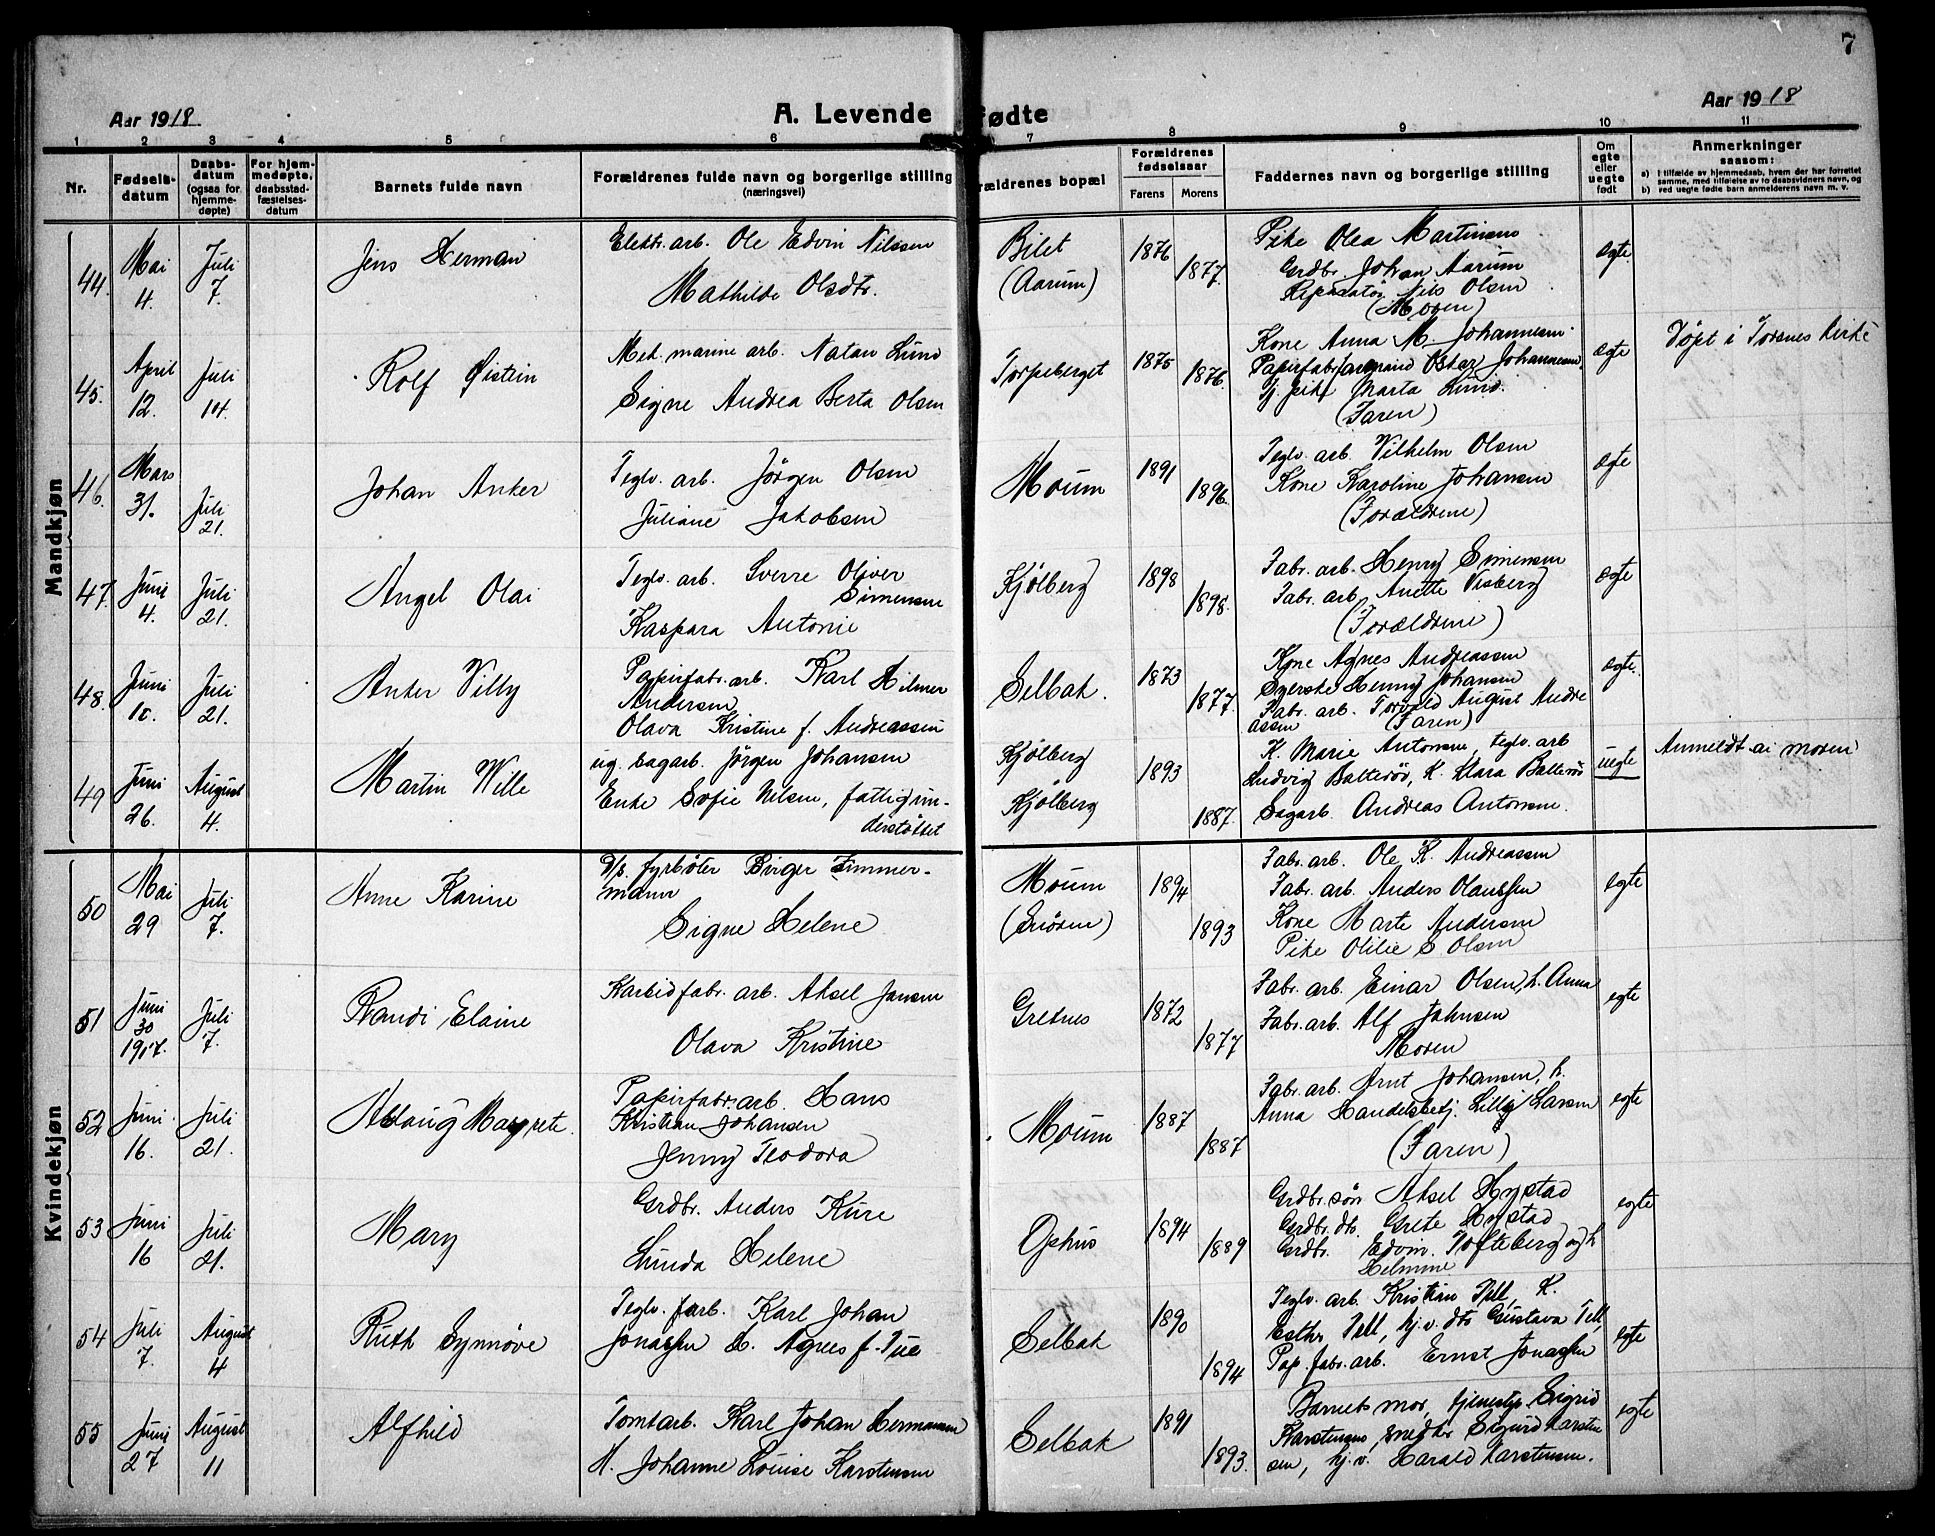 7
Aar 1918
A. Levende fødte
Aar 1918
1 2 3 4 5 6 7 8 9 10 11
Nr.
Fødsels-
datum
Daabs-
datum
(ogsaa for
hjemme-
døpte)
For hjem-
medøpte,
daabsstad-
fæstelses-
datum
Barnets fulde navn
Forældrenes fulde navn og borgerlige stilling
(næringsvei)
rældrenes bopæl
Forældrenes
fødselsaar
Farens Morens
Faddernes navn og borgerlige stilling
Om
egte
eller
uegte
født
Anmerkninger
saasom:
a) I tilfælde av hjemmedaab, hvem der har forrettet
samme, med tilføielse av to daabsvidners navn, og
b) ved uegte fødte barn anmelderens navn m. v.
Mandkjøn
44.
Mai
4.
Juli
7.
Jens Herman
Elektr. arb. Ole Edvin Nilssen
Mathilde Olsdtr.
Bilet
(Aarum)
1876
1877.
Pike Olea Martinsen
Grdbr. Johan Aarum
Reparatør Nils Olsen
(Moren)
egte.
45.
April
12.
Juli
14.
Rolf Øistein
Mek. marine arb. Natan Lund
Signe Andrea Berta Olsen
Torpeberget
1875
1876.
Kone Anna M. Johannesen
Papirfabr. Oskar Johannesen
Marta Lund.
(Faren)
egte
Døpt i Torsnes kirke
46.
Mars
31.
Juli
21.
Johan Anker
Teglv. arb. Jörgen Olsen
Juliane Jakobsen
Moum
1891
1896.
Teglv. arb. Vilhelm Olsen
Kone Karoline Johansen
(Forældrene)
egte
47.
Juni
4.
Juli
21.
Angel Olai
Teglv. arb. Sverre Oliver
Simensen
Kaspara Antonie
Kjölberg
1898
1898.
Fabr. arb. Henry Simensen
Fabr. arb. Anette Visberg
(Forældrene)
egte
48.
Juni
10.
Juli
21.
Anker Villy
Papirfabr. arb. Karl Hilmer
Andersen
Olava Kristine f. Andreassen
Selbak.
1873
1877.
Kone Agnes Andreassen
Syerske Henny Johansen
Fabr. arb. Torvald August Andre
assen (Faren)
egte.
49
Juni
26.
August
4.
Martin Wille
ug. sagarb. Jörgen Johansen
Enke Sofie Nilsen, fattigun-
derstöttet
Kjölberg
Kjölberg
1893
1887.
K. Marie Antonsen, teglv. arb
Ludvig Balteröd, K. Klara Balteröd
Sagarb. Andreas Antonsen.
uegte
Anmeldt av moren
Kvindekjøn
50
Mai
29
Juli
7.
Anne Karine
D/s. fyrböter Birger Zimmer-
mann
Signe Helene
Moum
1894
1893
Fabr. arb. Ole K. Andreassen
Fabr. arb. Anders Olaussen
Kone Marte Andersen
Pike Otilie S Olsen
egte
51
Juni
30
1917.
Juli
7.
Randi Elaine
Karbidfabr. arb. Aksel Jansen
Olava Kristine
Gretnes
1872
1877
Fabr. arb. Einar Olsen, h. Anna
Fabr. arb. Alf Johnsen
Moren
egte
52
Juni
16.
Juli
21.
Aslaug Margrete
Papirfabr. arb. Hans
Kristian Johansen
Jenny Teodora
Moum
1887
1887
Fabr. arb. Arnt Johansen, h.
Anna Handelsbetj. Lilly Larsen
(Faren)
egte
53
Juni
16
Juli
21.
Mary
Grdbr. Anders Kure
Lunda Helene
Ophus
1894
1889
Grdbr. sön Aksel Hystad
Grdbr. dtr. Grete Hystad
Grdbr. Edvin Tofteberg og h
Helmine
egte
54
Juli
7.
August
4
Ruth Synnöve
Teglv. farb. Karl Johan
Jonassen H. Agnes f. Tue
Selbak
1890
1894
Teglv. arb. Kristian Tell, K.
Esther Tell, hj.v. dtr Gustava Tell,
Pap. fabr. arb. Ernst Jonassen
egte
55
Juni
27
August
11
Alfhild
Tomtarb. Karl Johan Hermansen
H. Johanne Louise Karstensen
Selbak
1891
1893.
Barnets mor, tjenestp. Sigrid
Karstensen, Sigurd Karsten
sen, hj.v. Harald Karstensen.
egte